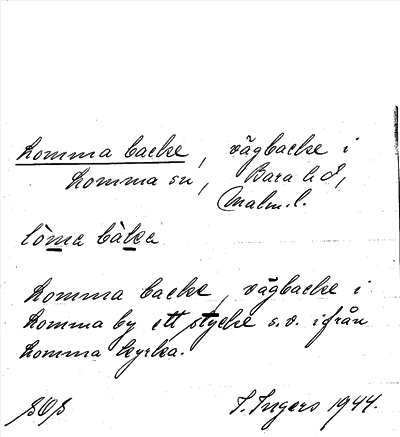 Lomma backe, vägbacke i
Lomma sn, Bara hd,
Malm. l.
Lomma backe, vägbacke i
Lomma by ett stycke s.v. ifrån
Lomma kyrka.
I. Ingers 1944.